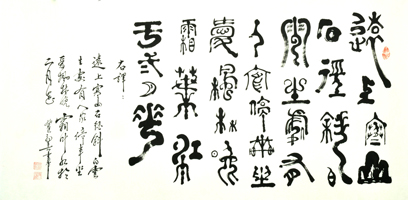 遠上寒山
石徑斜白
雲生處有
人家停車坐
愛楓林晚
霜葉紅
于二月花
右譯
遠上寒山石徑斜白雲
生處有人家停車坐
愛楓林晚霜葉紅於
二月花